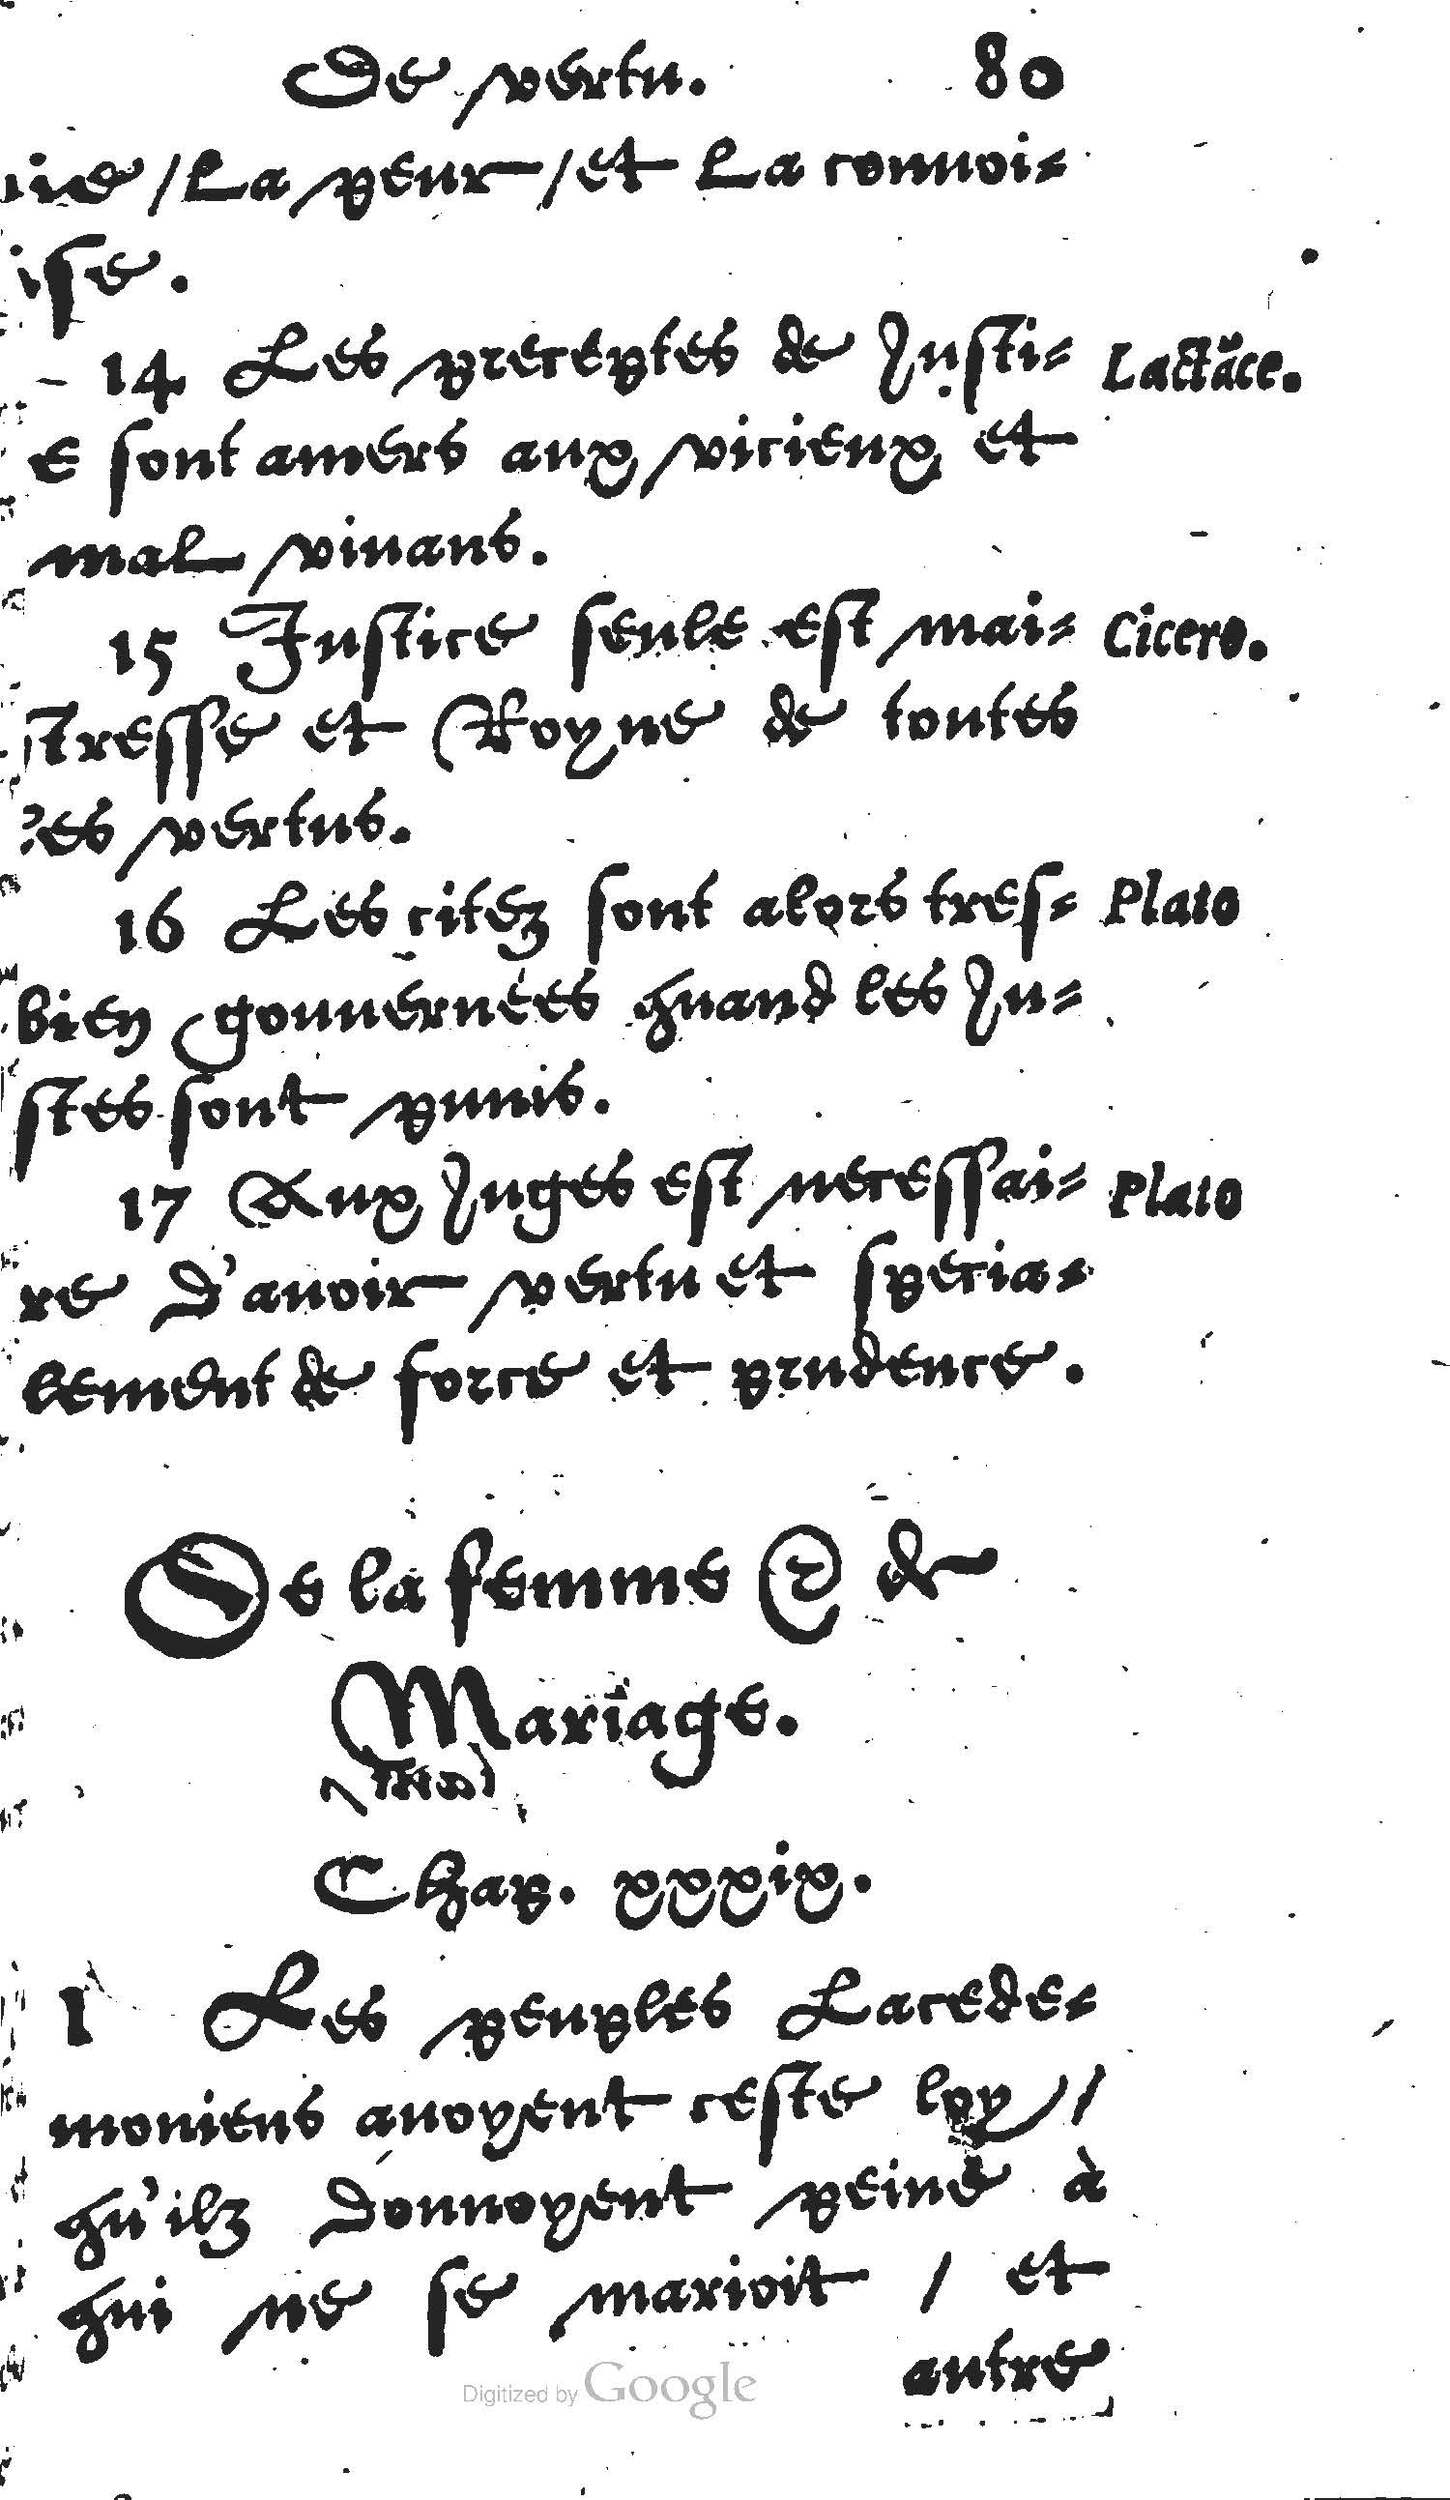 De vertu. 80
ine / La peur / et La connoi=
ise.
14 Les preceptes de Justi= Lactāce.
e sont amers aux vicieux et
mal viuans.
15 Justice seule est mai= Cicero.
stresse et Royne de toutes
les vertus.
16 Les citez sont alors tres= Plato
bien gouuernées quand les Ju=
stes sont punis.
17 Aux Juges est necessai= Plato
re d'auoir vertu et specia=
lement de force et prudence.
De la femme & de
Mariage.
Chap. xxxix.
1 Les peuples Lacede=
moniens auoyent ceste loy /
qu'ilz donnoyent peine à
qui ne se marioit / et
autre
Digitized by Google